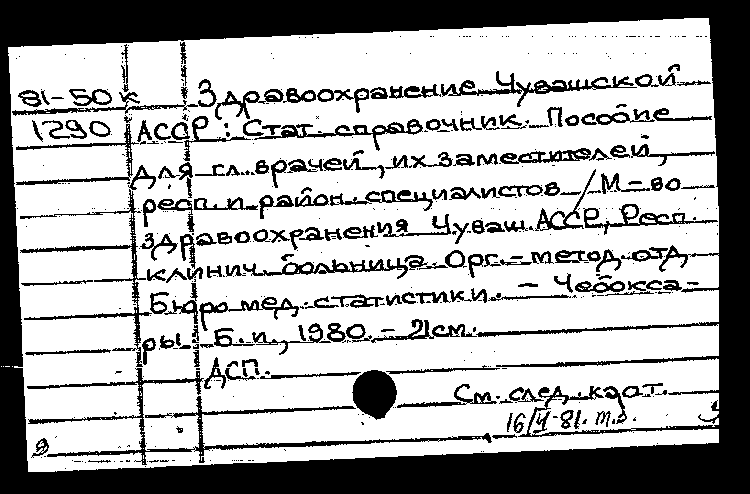 81-50к Здравоохранение Чувашской
1290 АССР: Стат. справочник. Пособие
для гл. врачей, их заместителей,
респ. и район. специалистов / М-во
здравоохранения Чуваш. АССР, Респ.
клинич. больница. Орг.-метод. отд.
Бюро мед. статистики. - Чебокса-
ры: Б. и., 1980. - 21см.
ДСП.
См. след. карт.
16/VI-81.